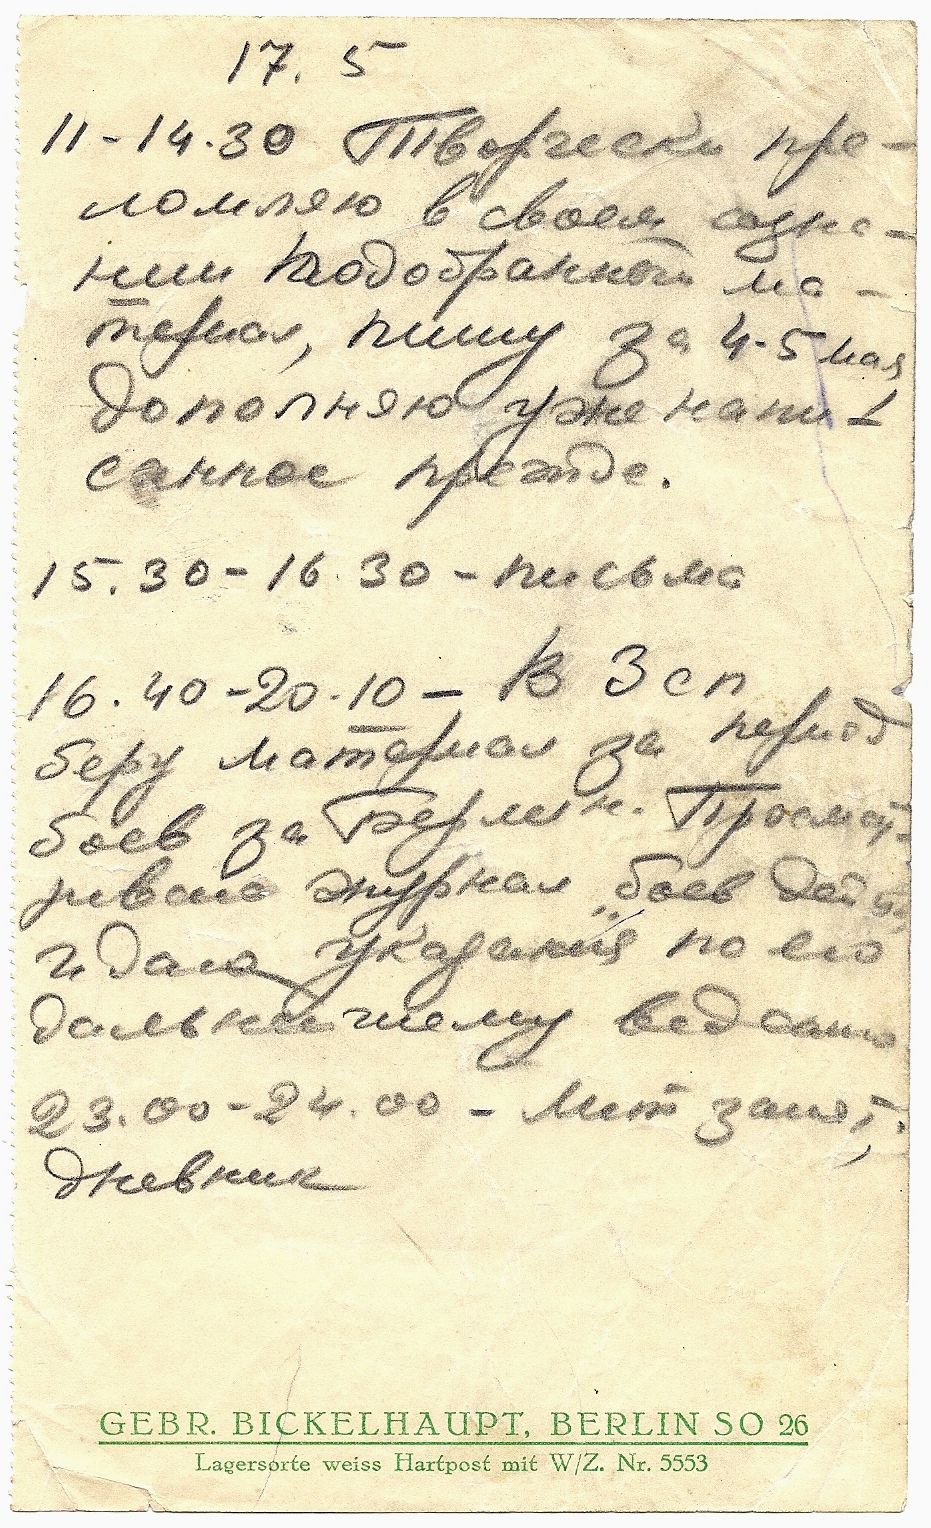 17. 5
11-14.30 Творчески пре-
ломляю в своем созна-
нии подобранный ма-
териал, пишу за 4-5 мая
дополняю уже напи-
санное прежде.
15.30-16.30 - письма
16.40-20.10 - В 3 сп
беру материал за период
боев за Берлин. Просмат-
риваю журнал „боев дейст.
и даю указания по его
дальнейшему ведению
23.00-24.00 - Лит занят,
дневник
GEBR. BICKELHAUPT, BERLIN SO 26
Lagersorte weiss Hartpost mit W/Z. Nr. 5553